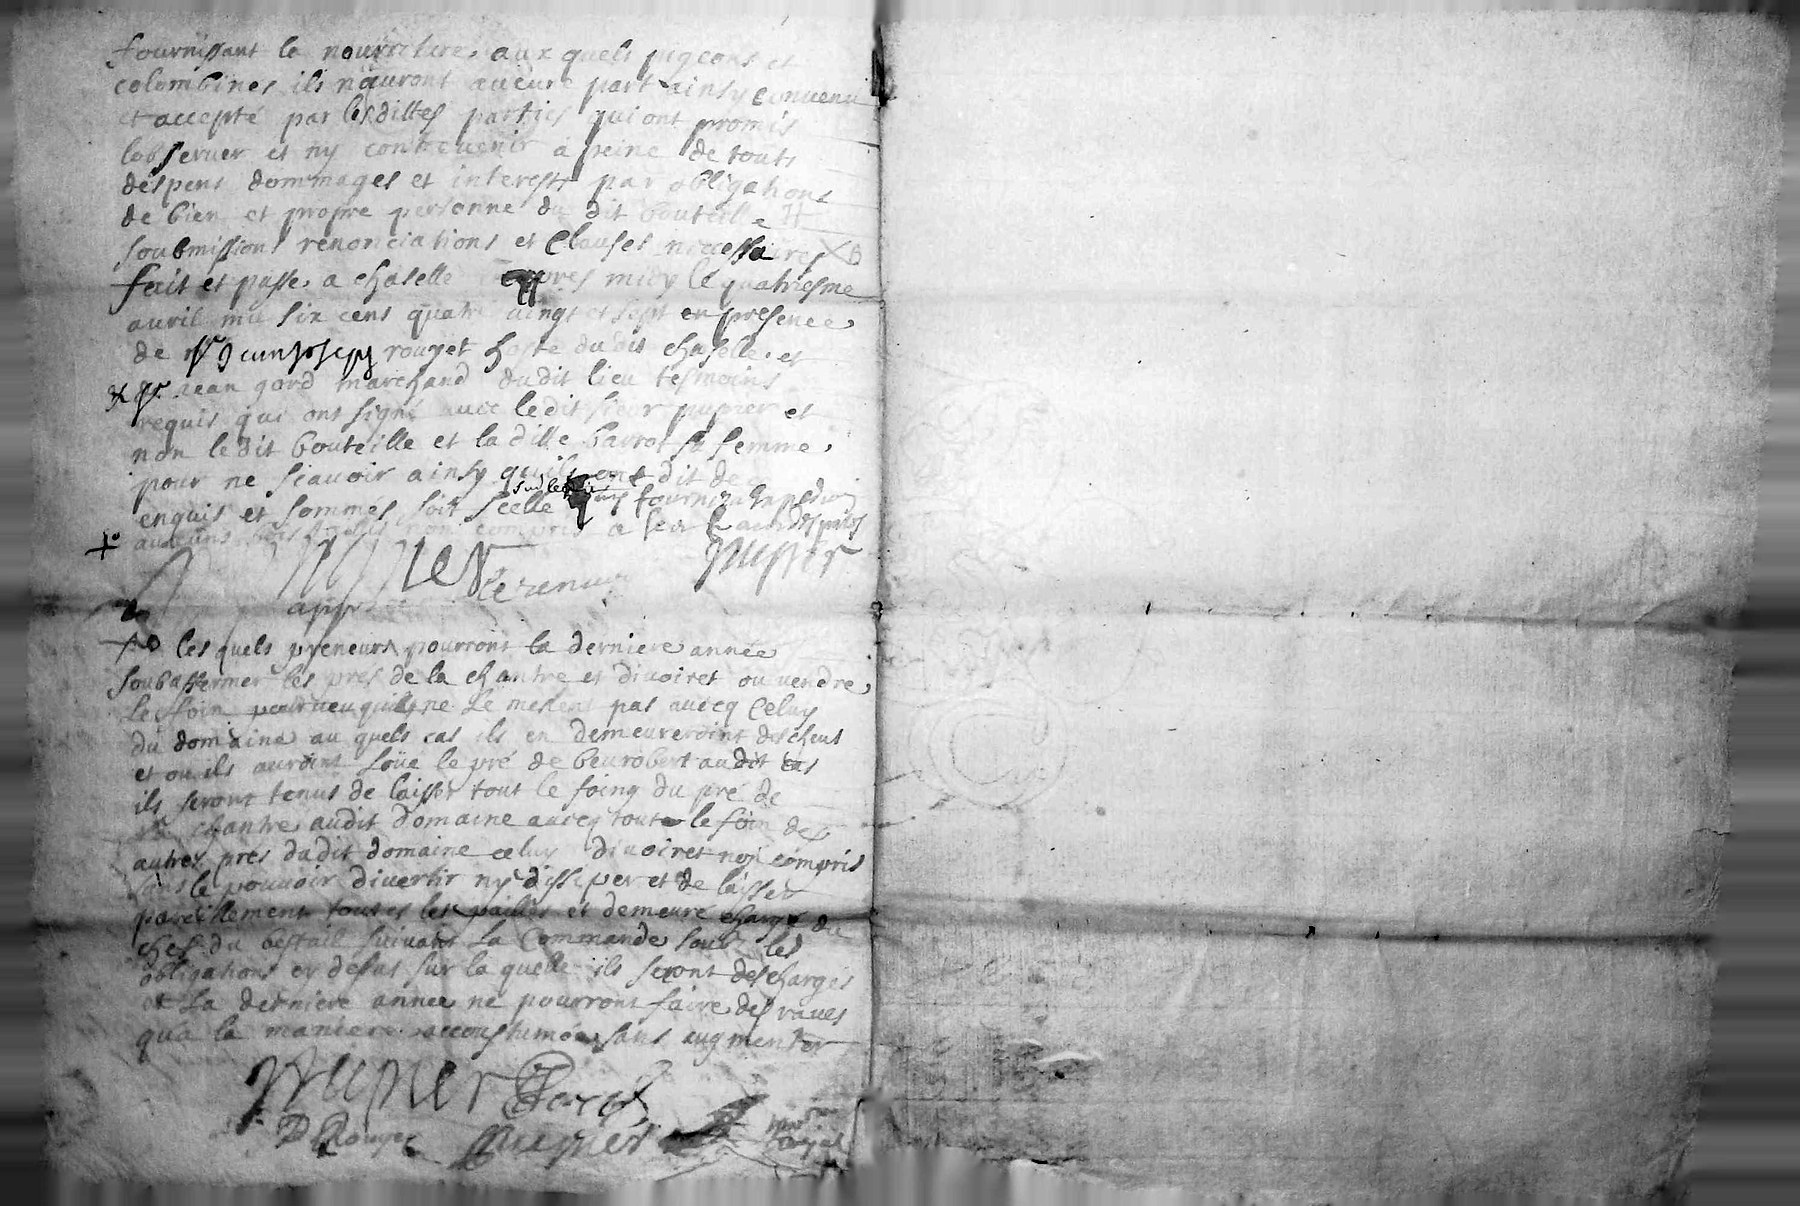 fournissant la nourriture, aux quels pigeons et
colombines ils n'auront aucune part ainsy convenu
et accepté par lesdittes parties qui ont promis
lobseruer et ny contreuenir à peine de touts
despens dommages et interests par obligations
de bien et propre personne du dit bouteille
soubmissions renonciations et clauses necessaires
fait et passé a chaselle apres midy le quatriesme
auril mil six cens quatre uingt et sept en presence
de rouyet hoste du dit chaselle et
jean gord marchand dudit lieu tesmoins
requis qui ont signé auec ledit sieur pupier et
non le dit bouteille et la ditte barrot sa femme,
pour ne sçauoir ainsy qu'ils ont dit de ce
enquis et sommés soit scellé
non compris a
pupier
les quels preneurs pourront la derniere année
soubaffermer les pres de la chantre et diuoiret ou uendre
le foin pourueu quils ne le meslent pas auecq celuy
du domaine au quels cas ils en demeureroint descheus
et ou ils auroint loüe le pré de beurobert au dit cas
ils seront tenus de laisser tout le foing du pré de
la chantre audit domaine auecq toute le foin des
autres pres dudit domaine celuy diuoiret non compris
sans le pouuoir diuertir ny dissiper et de laisser
pareillement toutes les pailles et demeure chargé du
chef du bestail suiuant la commande soubz les
obligations cy desus sur la quelle ils seront deschargés
et la derniere année ne pourront faire des raues
qua la maniere accoustumée sans augmenter
pupier
Rouyet pupier